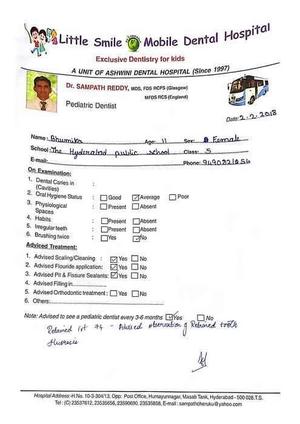 Little Smile Mobile Dental Hospital
Exclusive Dentistry for kids
A UNIT OF ASHWINI DENTAL HOSPITAL (Since 1997)
Dr. SAMPATH REDDY, MDS, FDS RCPS (Glasgow)
MFDS RCS (England)
Pediatric Dentist
Date: 2-2-2018
Name: Bhumika Age: 11 Sex: Female
School: The Hyderabad public school Class: 5
E-mail: Phone:
On Examination:
1. Dental Caries in :
(Cavities)
2. Oral Hygiene Status : Good Average Poor
3. Physiological : Present Absent
Spaces
4. Habits : Present Absent
5. Irregular teeth : Present Absent
6. Brushing twice : Yes No
Adviced Treatment:
1. Advised Scaling/Cleaning : Yes No
2. Advised Flouride application: Yes No
3. Advised Pit & Fissure Sealents: Yes No
4. Advised Filling in
5. Advised Orthodontic treatment : Yes No
6. Others:
Note: Advised to see a pediatric dentist every 3-6 months Yes No
Retained - Advised observation of Retained tooth
Hospital Address: H.No. 10-3-304/13, Opp: Post Office, Humayunnagar, Masab Tank, Hyderabad - 500 028.T.S.
Tel: (C) 23537612, 23535656, 23590690, 23535858, E-mail : sampathcheruku@yahoo.com